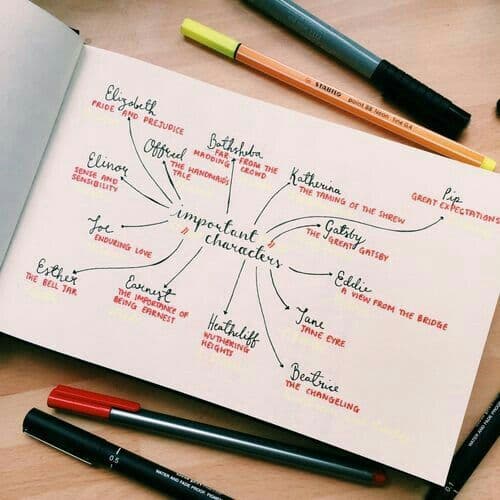 STABILO point 88 Neon fine 0,4
Elizabeth
PRIDE AND PREJUDICE
Offred
THE HANDMAID'S
TALE
Bathsheba
FAR FROM THE
MADDING CROWD
Katherina
THE TAMING OF THE SHREW
Pip
GREAT EXPECTATIONS
Elinor
SENSE AND
SENSIBILITY
important
characters
Gatsby
THE GREAT GATSBY
Joe
ENDURING LOVE
Eddie
A VIEW FROM THE BRIDGE
Esther
THE BELL JAR
Earnest
THE IMPORTANCE OF
BEING EARNEST
Heathcliff
WUTHERING
HEIGHTS
Jane
JANE EYRE
Beatrice
THE CHANGELING
0.5
WATER AND FADE PROOF PIGMENT